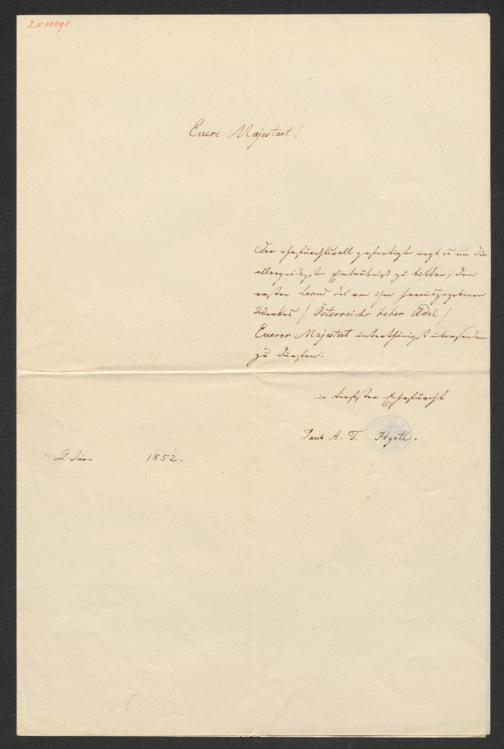 Euere Majestaet!
Der ehrfurchtsvoll gefertigte wagt es um die
allergnädigste Erlaubniß zu bitten, den
ersten Band des von ihm herausgegebenen
Werkes / Österreichs hoher Adel /
Euerer Majestaet unterthänigst übersenden
zu dürfen.
in tiefster Ehrfurcht
A. T. Hyrtl.
Wien 1852.